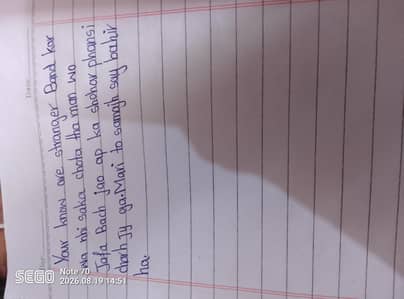 Your know are stranger Band kar
wa nhi saka chata tha man wo
Jafa Bach jao ap ka shohar phansi
charh Jy ga. Mari to samajh say bahir
ha.
SEGO Note 70
2026.08.19 14:51